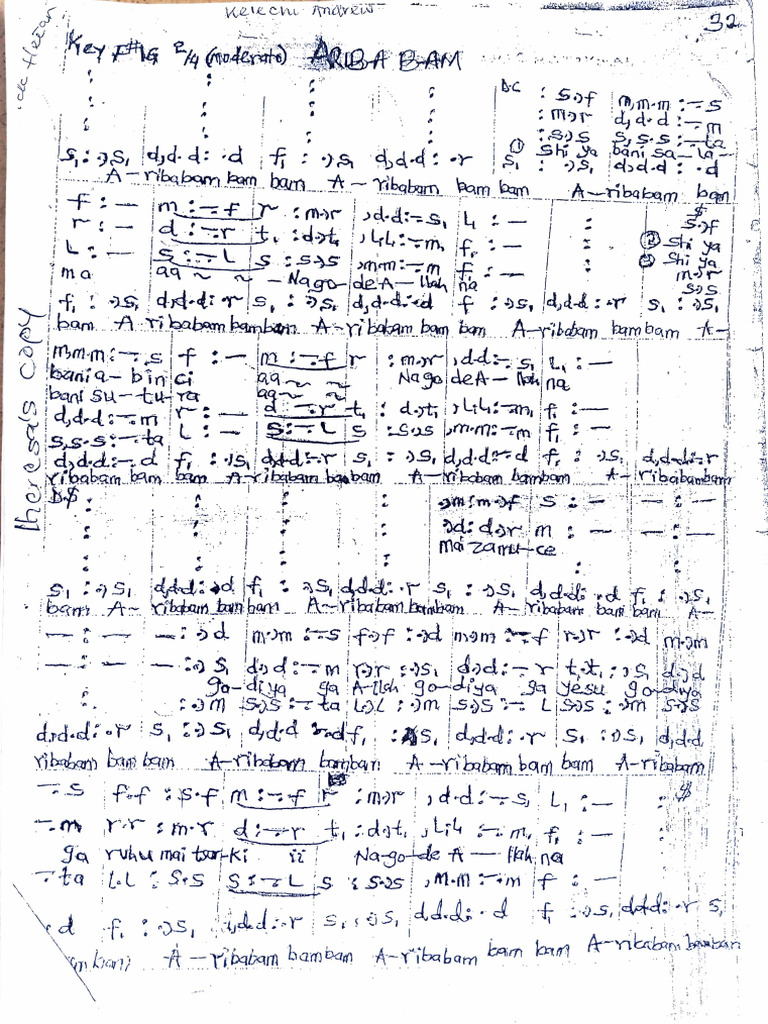 Kelechi Andrew
32
Key F#/G 2/4 (moderato) ARIBABAM
DC : s.,f m,m.m :-.s
: m.,r d,d.d :-.m
: s.,s s,s.s :-.ta
① shi ya bani sa-la-
s₁ : .,s₁ d,d.d : .d f₁ : .,s₁ d,d.d : .r s₁ : .,s₁ d,d.d : .d
A-ribabam bam bam A-ribabam bam bam A-ribabam bam
f : — m :-.f r : m.,r ,d.d :-.s₁ l₁ : — : $ s.,f
r : — d :-.r t₁ : d.,t₁ ,l₁.l₁ :-.m₁ f₁ : — : ② shi ya
l : — s :-.l s : s.,s ,m.m :-.m f₁ : — : ③ shi ya
m.,r
s.,s
ma aa ~ ~ - Nago-de A-llah na
f₁ : .,s₁ d,d.d : .r s₁ : .,s₁ d,d.d : .d f : .,s₁ d,d.d : .r s₁ : .,s₁
bam A ribabam bam bam A-ribabam bam bam A-ribabam bam bam A-
m,m.m :-.s f : — m :-.f r : m.,r ,d.d :-.s₁ l₁ : —
bani a-bin ci aa ~ ~ Nago de A-llah na
bani su-tu-ra aa ~ ~
d,d.d :-.m r : — d :-.r t₁ : d.,t₁ ,l₁.l₁ :-.m₁ f₁ : —
s,s.s :-.ta l : — s :-.l s : s.,s ,m.m :-.m f₁ : —
d,d.d :-.d f₁ : .,s₁ d,d.d :-.r s₁ : .,s₁ d,d.d :-.d f₁ : .,s₁ d,d.d :-.r
ribabam bam bam A-ribabam bam bam A-ribabam bam bam A-ribabam bam
D.$
.,m : m.,f s : — — : —
.,d : d.,r m : — — : —
mai zamu-ce
s₁ : .,s₁ d,d.d : .d f₁ : .,s₁ d,d.d : .r s₁ : .,s₁ d,d.d : .d f₁ : .,s₁
bam A-ribabam bam bam A-ribabam bam bam A-ribabam bam bam A-
— : — — : .,d m.,m :-.s f.,f : .,d m.,m :-.f r.,r : .,d m.,m
— : — — : .,s₁ d.,d :-.m r.,r : .,s₁ d.,d :-.r t₁.,t₁ : .,s₁ d.,d
go-diya ga A-llah go-diya ga yesu go-diya
: .,m s.,s :-.ta l.,l : .,m s.,s :-.l s.,s : .,m s.,s
d,d.d : .r s₁ : .,s₁ d,d.d : .d f₁ : .,s₁ d,d.d : .r s₁ : .,s₁ d,d.d
ribabam bam bam A-ribabam bam bam A-ribabam bam bam A-ribabam
-.s f.f : s.f m :-.f r : m.,r ,d.d :-.s₁ l₁ : — : $
-.m r.r : m.r d :-.r t₁ : d.,t₁ ,l₁.l₁ :-.m₁ f₁ : —
ga ruhu mai tsar-ki ii Nago-de A-llah na
-.ta l.l : s.s s :-.l s : s.,s ,m.m :-.m f : —
.d f₁ : .,s₁ d,d.d : .r s₁ : .,s₁ d,d.d : .d f : .,s₁ d,d.d : .r s₁
bam A-ribabam bam bam A-ribabam bam bam A-ribabam bam bam
Theresa's copy